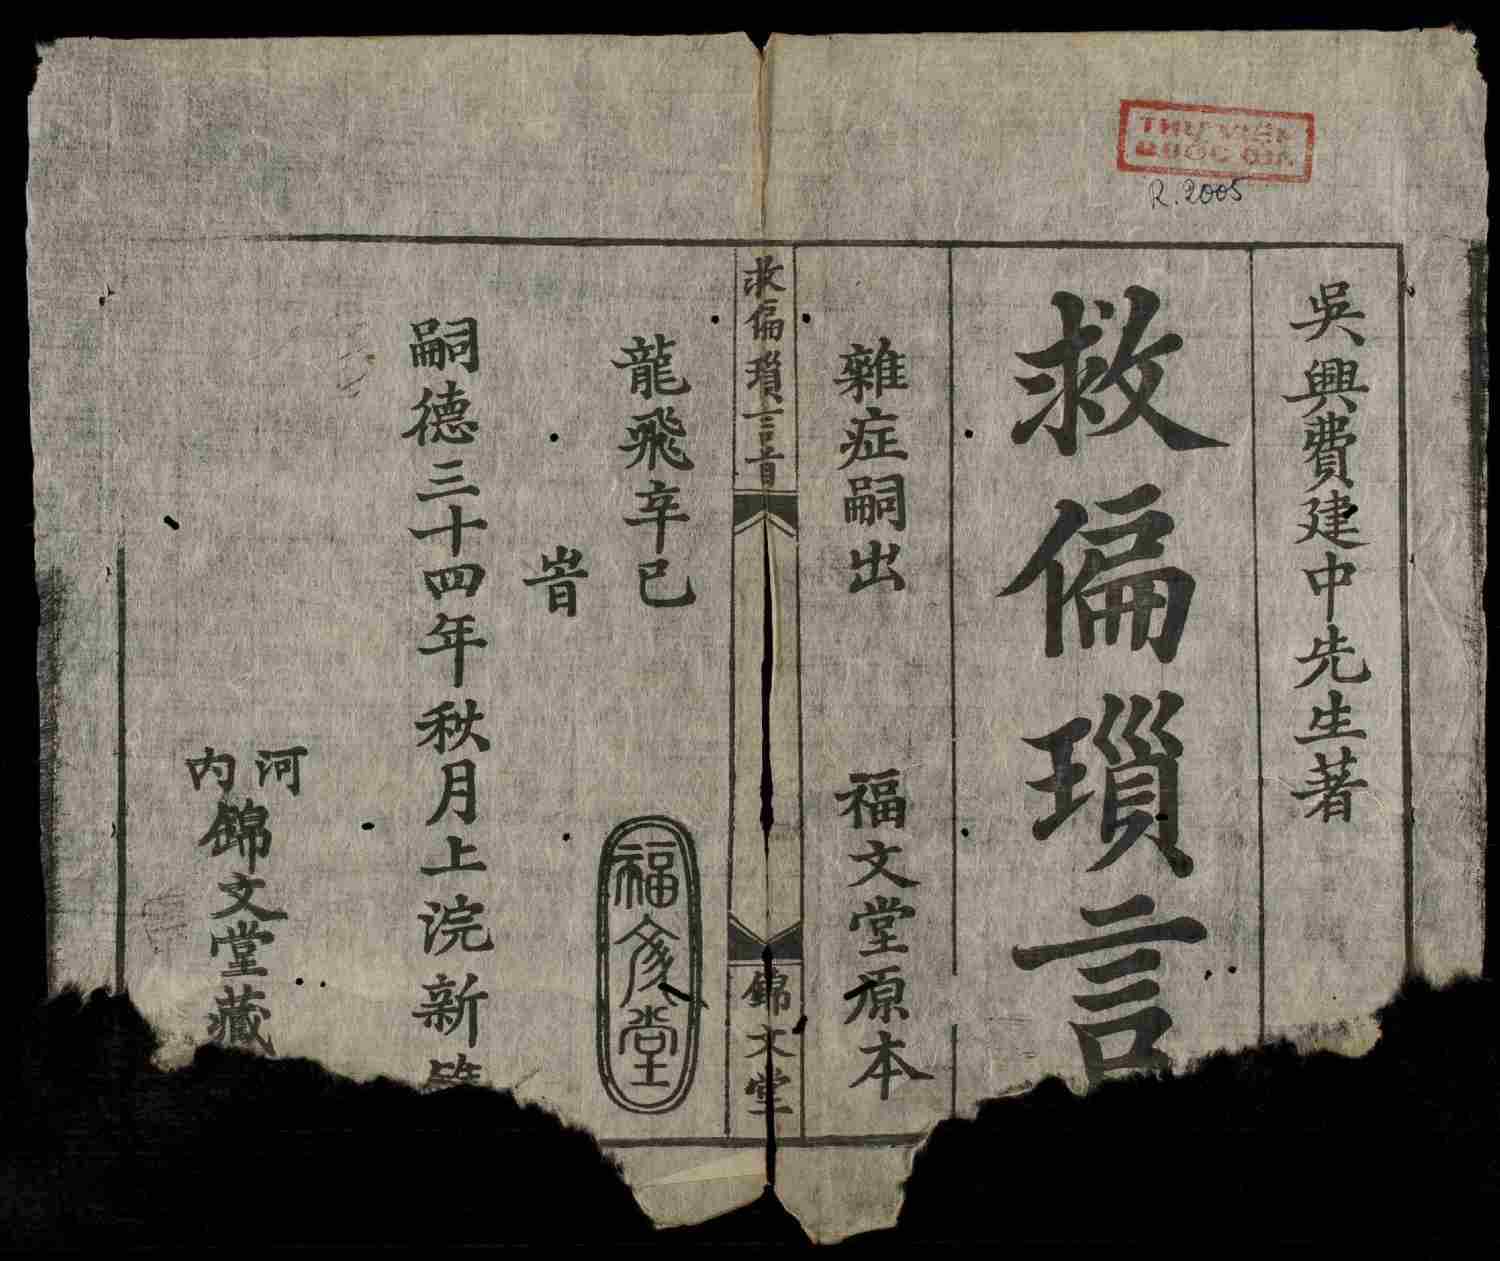 THƯ VIỆN
QUỐC GIA
R.2005
吳興費建中先生著
救偏瑣言
雜症嗣出 福文堂原本
救偏瑣言首
錦文堂
龍飛辛巳
福文堂
旹
嗣德三十四年秋月上浣新
河內
錦文堂藏